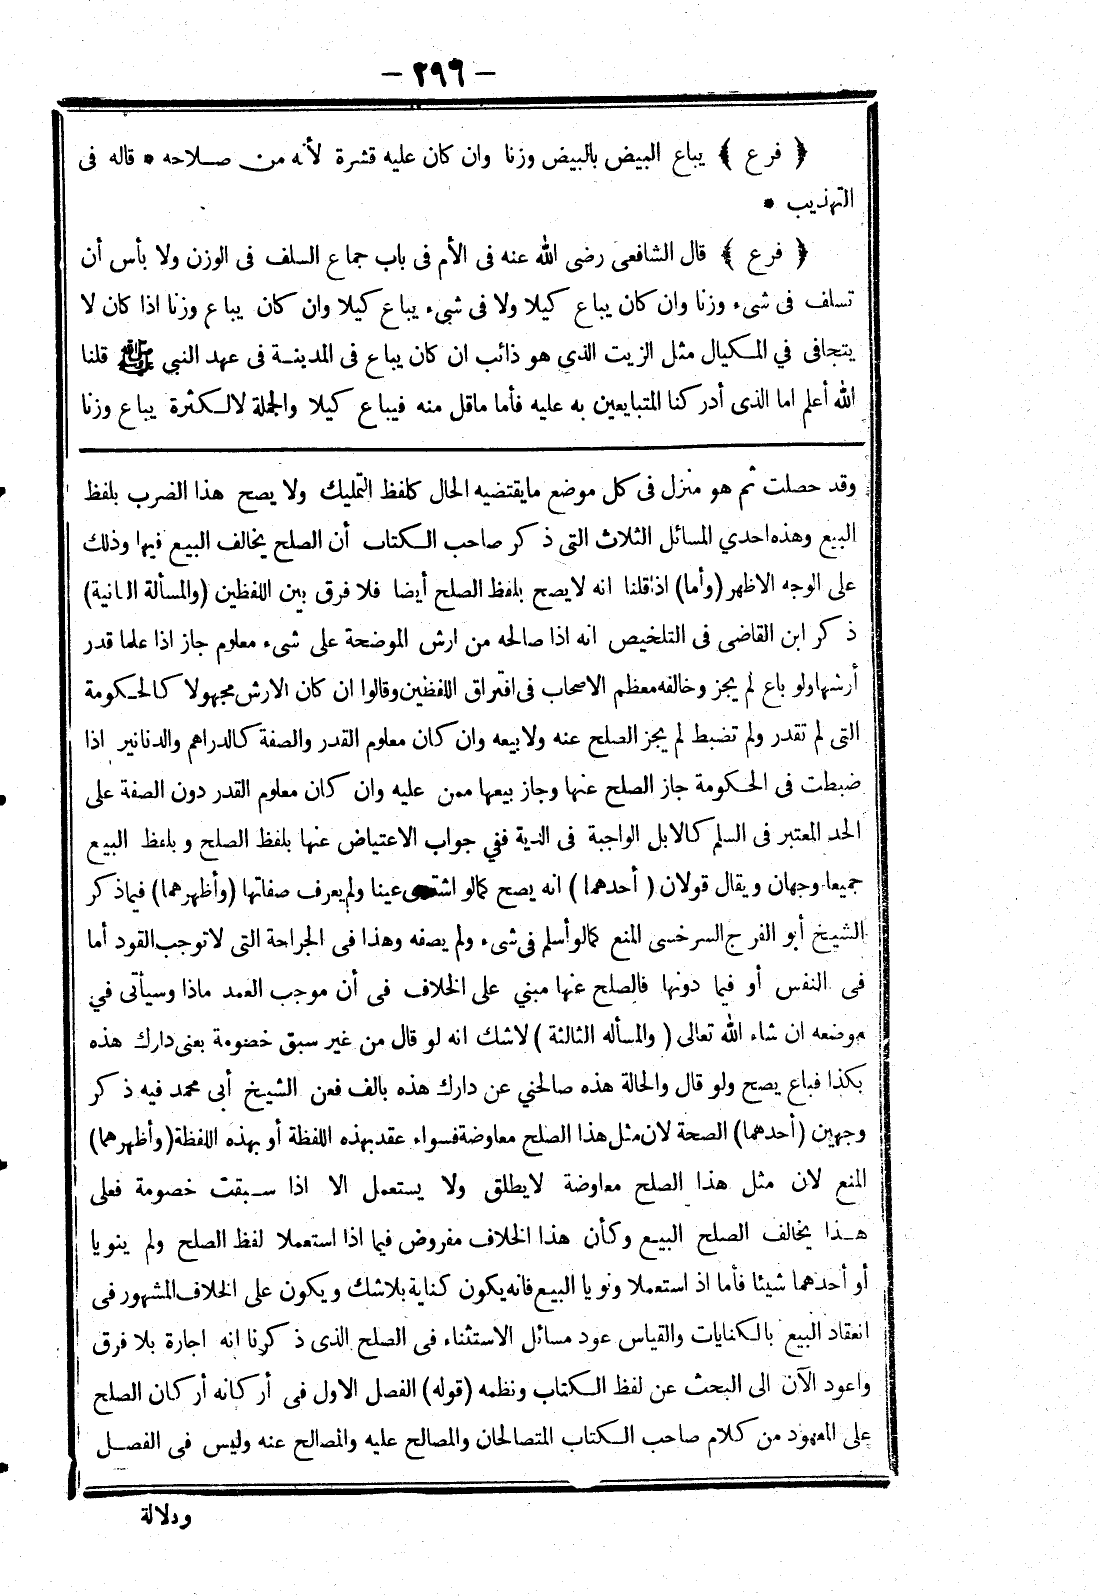 — ٢٩٦ —
﴿ فرع ﴾ يباع البيض بالبيض وزنا وان كان عليه قشرة لأنه من صلاحه * قاله فى
التهذيب *
﴿ فرع ﴾ قال الشافعى رضى الله عنه فى الأم فى باب جماع السلف فى الوزن ولا بأس أن
تسلف فى شىء وزنا وان كان يباع كيلا ولا فى شىء يباع كيلا وان كان يباع وزنا اذا كان لا
يتجافى في المكيال مثل الزيت الذي هو ذائب ان كان يباع فى المدينة فى عهد النبي ﷺ قلنا
الله أعلم اما الذى أدركنا المتبايعين به عليه فأما ماقل منه فيباع كيلا والجملة لالكثرة يباع وزنا
وقد حصلت ثم هو منزل فى كل موضع مايقتضيه الحال كلفظ التمليك ولا يصح هذا الضرب بلفظ
البيع وهذه احدي المسائل الثلاث التى ذكر صاحب الكتاب أن الصلح يخالف البيع فيها وذلك
على الوجه الاظهر (وأما) اذا قلنا انه لايصح بلفظ الصلح أيضا فلا فرق بين اللفظين (والمسألة الثانية)
ذكر ابن القاضى فى التلخيص انه اذا صالحه من ارش الموضحة على شىء معلوم جاز اذا علما قدر
أرشها ولو باع لم يجز وخالفه معظم الاصحاب فى افتراق اللفظين وقالوا ان كان الارش مجهولا كالحكومة
التى لم تقدر ولم تضبط لم يجز الصلح عنه ولا بيعه وان كان معلوم القدر والصفة كالدراهم والدنانير اذا
ضبطت فى الحكومة جاز الصلح عنها وجاز بيعها ممن عليه وان كان معلوم القدر دون الصفة على
الحد المعتبر فى السلم كالابل الواجبة فى الدية ففي جواب الاعتياض عنها بلفظ الصلح وبلفظ البيع
جميعا وجهان ويقال قولان ( أحدهما ) انه يصح كمالو اشترى عينا ولم يعرف صفاتها (وأظهرهما) فيما ذكر
الشيخ أبو الفرج السرخسى المنع كمالو أسلم فى شىء ولم يصفه وهذا فى الجراحة التى لا توجب القود أما
فى النفس أو فيما دونها فالصلح عنها مبني على الخلاف فى أن موجب العمد ماذا وسيأتى في
موضعه ان شاء الله تعالى ( والمسأله الثالثة ) لاشك انه لو قال من غير سبق خصومة بعنى دارك هذه
بكذا فباع يصح ولو قال والحالة هذه صالحني عن دارك هذه بالف فعن الشيخ أبى محمد فيه ذكر
وجهين (أحدهما) الصحة لان مثل هذا الصلح معاوضة فسواء عقد بهذه اللفظة أو بهذه اللفظة (وأظهرهما)
المنع لان مثل هذا الصلح معاوضة لايطلق ولا يستعمل الا اذا سبقت خصومة فعلى
هذا يخالف الصلح البيع وكأن هذا الخلاف مفروض فيما اذا استعملا لفظ الصلح ولم ينويا
أو أحدهما شيئا فأما اذ استعملا ونويا البيع فانه يكون كناية بلاشك ويكون على الخلاف المشهور فى
انعقاد البيع بالكنايات والقياس عود مسائل الاستثناء فى الصلح الذى ذكرنا انه اجارة بلا فرق
واعود الآن الى البحث عن لفظ الكتاب ونظمه (قوله) الفصل الاول فى أركانه أركان الصلح
على المعهود من كلام صاحب الكتاب المتصالحان والمصالح عليه والمصالح عنه وليس فى الفصل
ودلالة